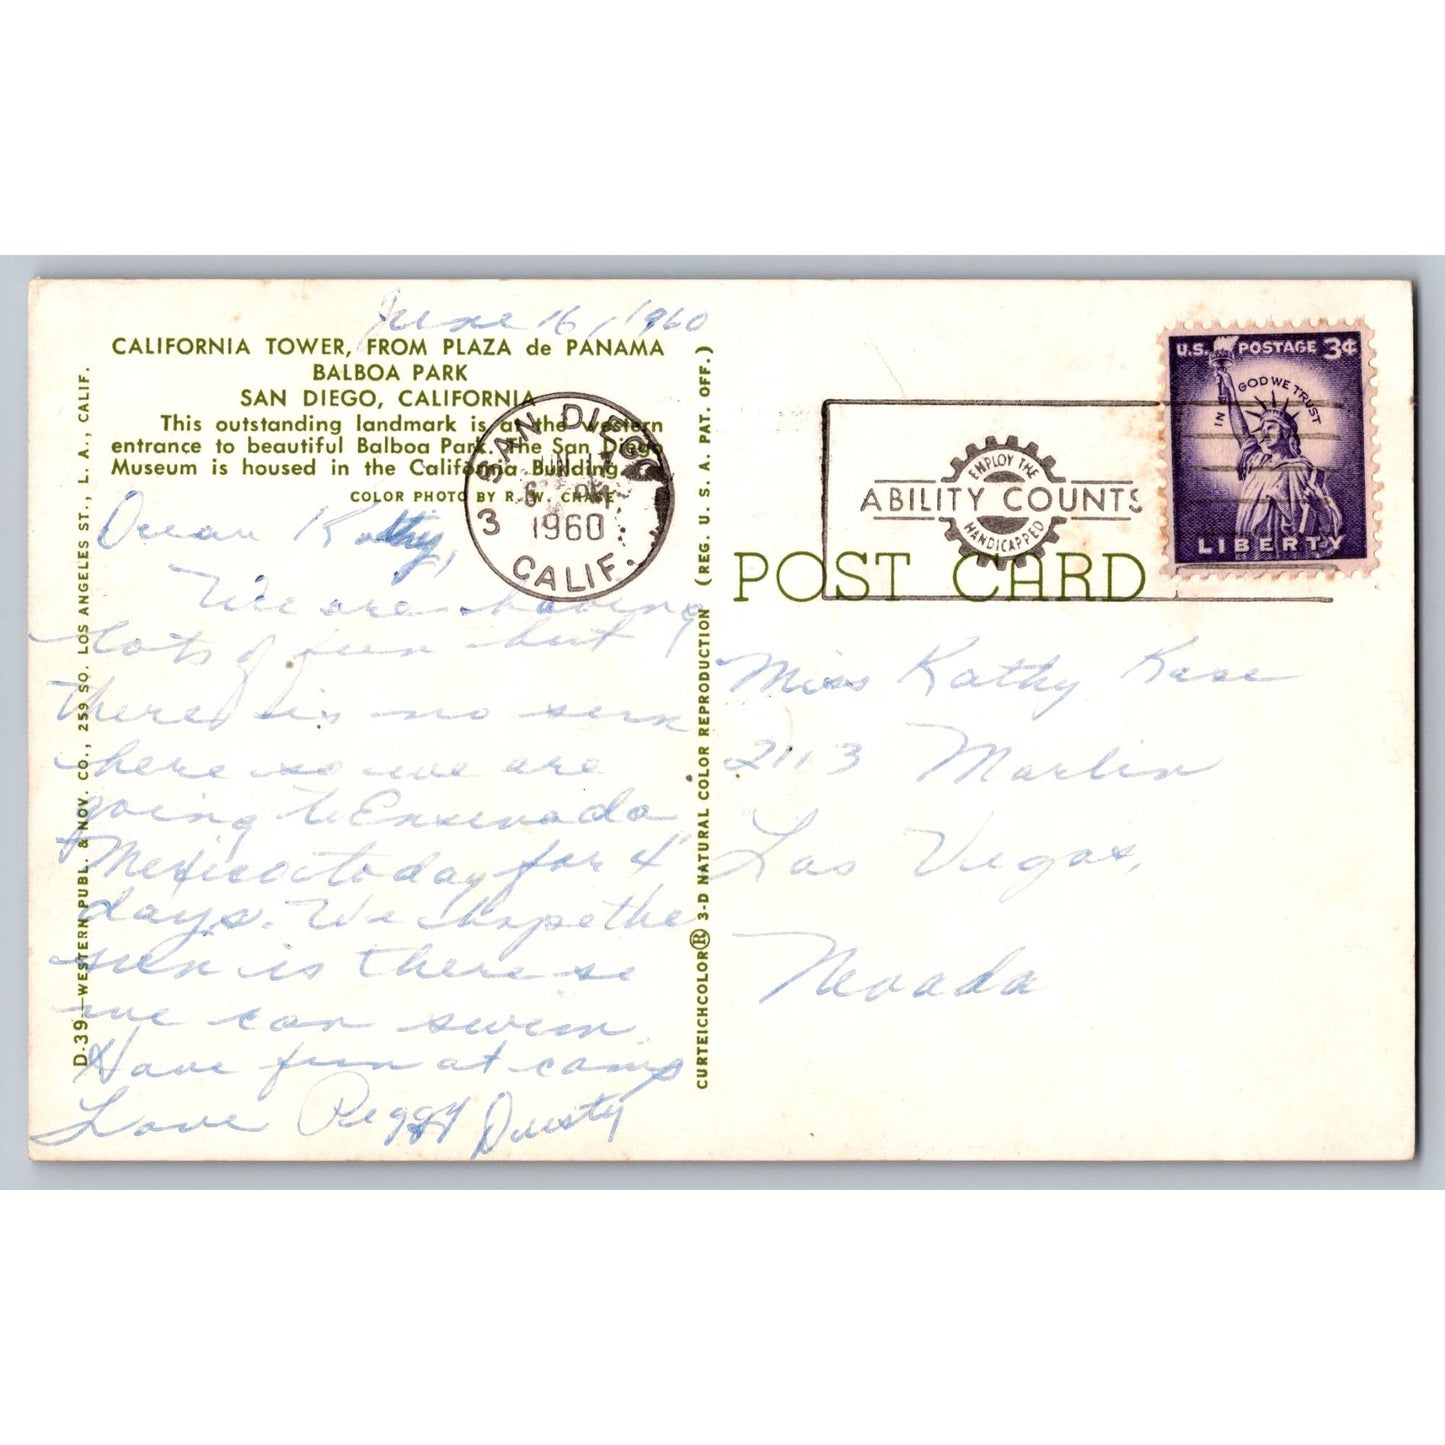 June 16, 1960
CALIFORNIA TOWER, FROM PLAZA de PANAMA
BALBOA PARK
SAN DIEGO, CALIFORNIA
This outstanding landmark is at the western
entrance to beautiful Balboa Park. The San Diego
Museum is housed in the California Building.
COLOR PHOTO BY R. W. CHASE
Dear Kathy,
We are having
lots of fun but
there is no sun
here so we are
going to Ensenada
Mexico today for 4
days. We hope the
sun is there so
we can swim.
Have fun at camp
Love Peggy Dusty
D-39—WESTERN PUBL. & NOV. CO., 259 SO. LOS ANGELES ST., L. A., CALIF.
CURTEICHCOLOR® 3-D NATURAL COLOR REPRODUCTION (REG. U. S. A. PAT. OFF.)
SAN DIEGO
JUN 17
6 PM
1960
3
CALIF.
EMPLOY THE
ABILITY COUNTS
HANDICAPPED
U.S. POSTAGE 3¢
IN GOD WE TRUST
LIBERTY
POST CARD
Miss Kathy Kase
2113 Marlin
Las Vegas,
Nevada